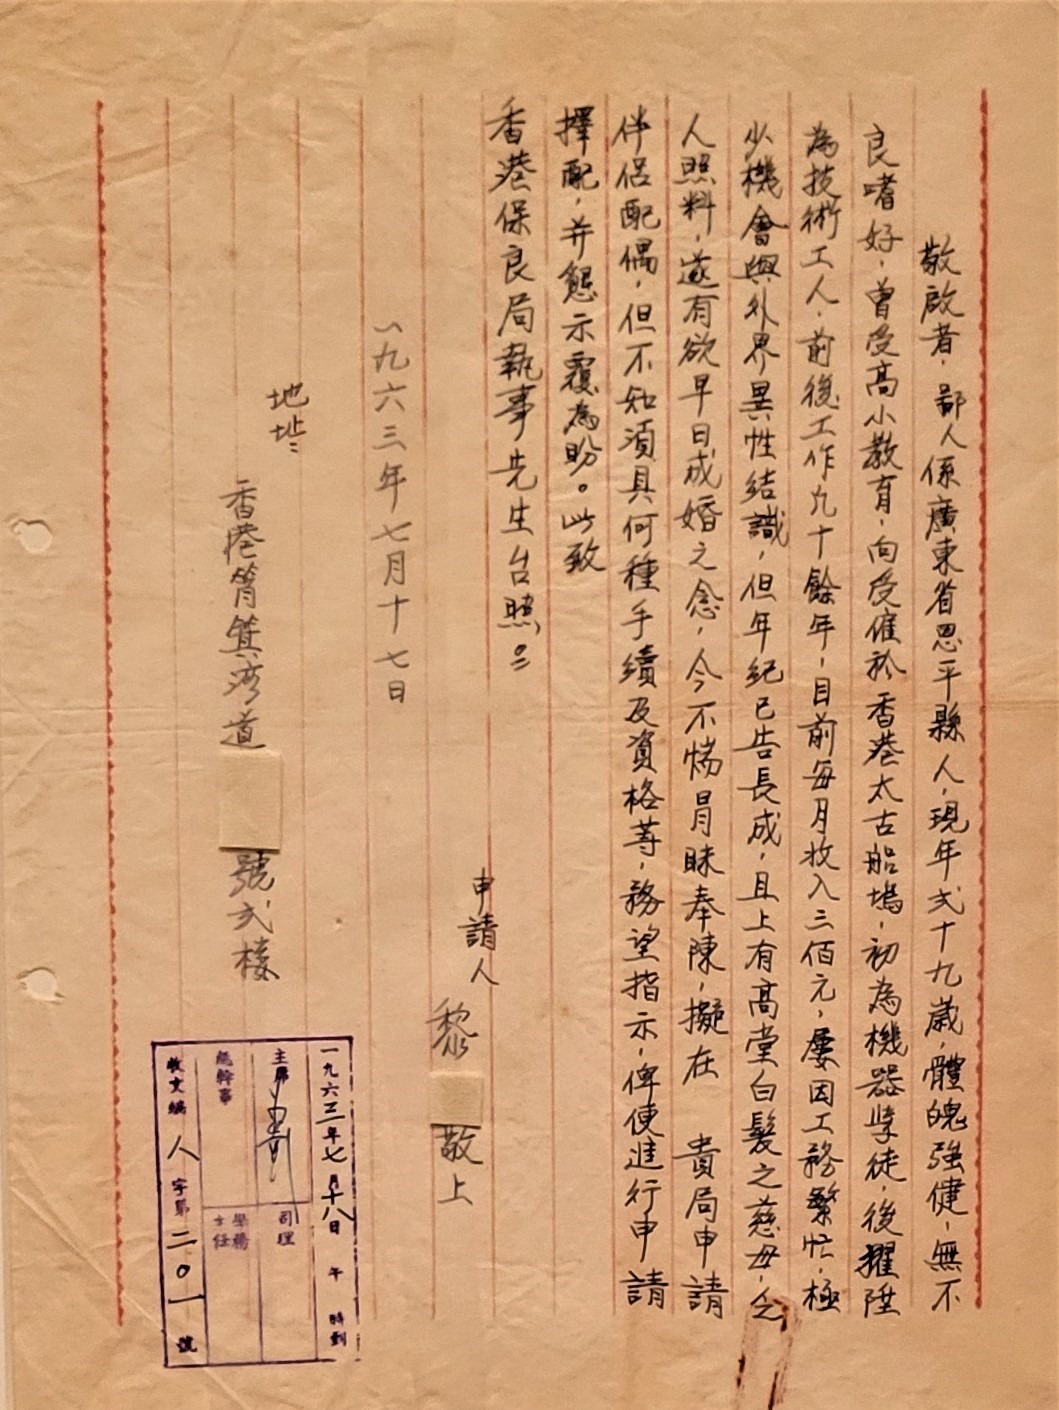 敬啟者，鄙人係廣東省恩平縣人，現年弍十九歲，體魄強健，無不
良嗜好，曾受高小教育，向受僱於香港太古船塢，初為機器學徒，後擢陞
為技術工人，前後工作九十餘年，目前每月收入三佰元，屢因工務繁忙，極
少機會與外界異性結識，但年紀已告長成，且上有高堂白髮之慈母，乏
人照料，遂有欲早日成婚之念，今不惴冒昧奉陳，擬在　貴局申請
伴侶配偶，但不知須具何種手續及資格等，務望指示，俾便進行申請
擇配，并懇示覆為盼。此致
香港保良局執事先生台照。
申請人
黎
敬上
一九六三年七月十七日
地址：
香港筲箕灣道
號弍樓
一九六三年七月十八日　午　時到
主席
司理
總幹事
學務主任
收文編人字第二〇一號